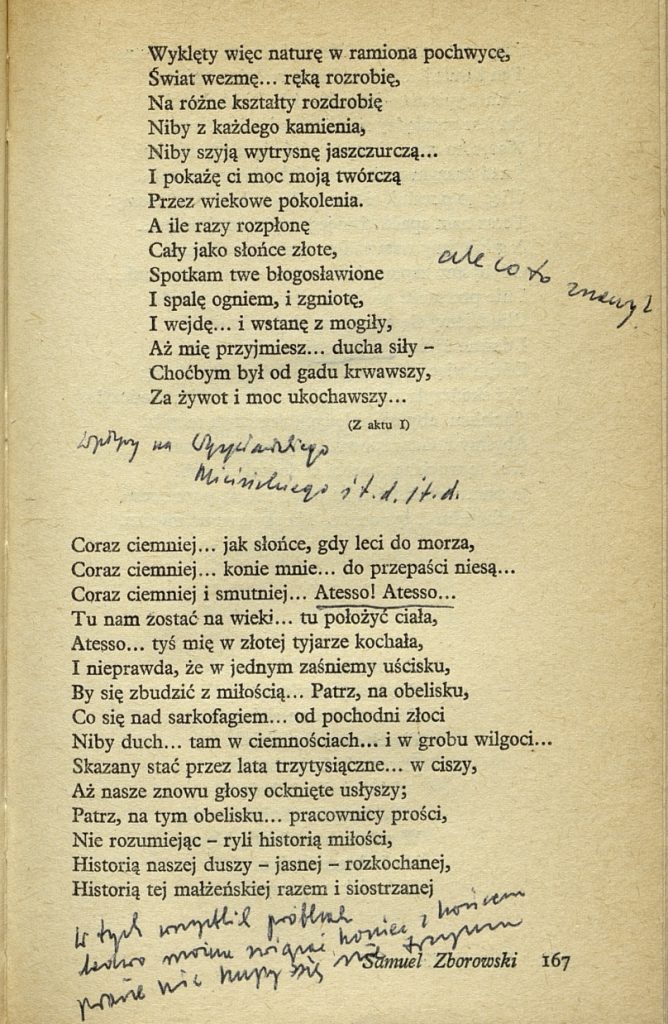 Wyklęty więc naturę w ramiona pochwycę,
Świat wezmę... ręką rozrobię,
Na różne kształty rozdrobię
Niby z każdego kamienia,
Niby szyją wytrysnę jaszczurczą...
I pokażę ci moc moją twórczą
Przez wiekowe pokolenia.
A ile razy rozpłonę
Cały jako słońce złote,
Spotkam twe błogosławione
I spalę ogniem, i zgniotę,
I wejdę... i wstanę z mogiły,
Aż mię przyjmiesz... ducha siły –
Choćbym był od gadu krwawszy,
Za żywot i moc ukochawszy...
(Z aktu I)
ale co to znaczy?
Wpływy na Wyspiańskiego
Micińskiego i t.d. i t.d.
Coraz ciemniej... jak słońce, gdy leci do morza,
Coraz ciemniej... konie mnie... do przepaści niesą...
Coraz ciemniej i smutniej... Atesso! Atesso...
Tu nam zostać na wieki... tu położyć ciała,
Atesso... tyś mię w złotej tyjarze kochała,
I nieprawda, że w jednym zaśniemy uścisku,
By się zbudzić z miłością... Patrz, na obelisku,
Co się nad sarkofagiem... od pochodni złoci
Niby duch... tam w ciemnościach... i w grobu wilgoci...
Skazany stać przez lata trzytysiączne... w ciszy,
Aż nasze znowu głosy ocknięte usłyszy;
Patrz, na tym obelisku... pracownicy prości,
Nie rozumiejąc – ryli historią miłości,
Historią naszej duszy – jasnej – rozkochanej,
Historią tej małżeńskiej razem i siostrzanej
W tych wszystkich próbkach
ledwo można związać koniec z końcem
prawie nic kupy się nie trzyma
Samuel Zborowski 167